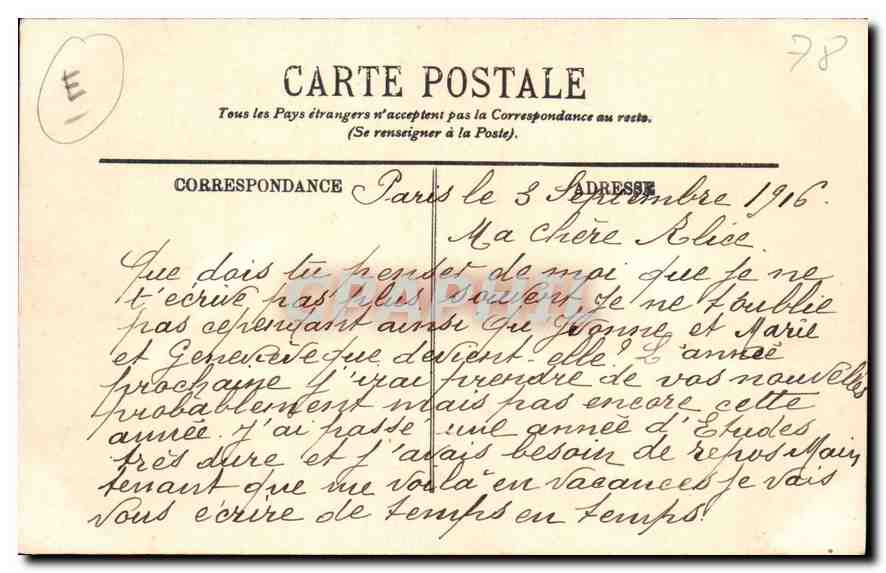 E
78
CARTE POSTALE
Tous les Pays étrangers n'acceptent pas la Correspondance au recto.
(Se renseigner à la Poste).
CORRESPONDANCE
ADRESSE
Paris le 3 Septembre 1916.
Ma chère Alice.
Que dois tu penser de moi que je ne
t'écrive pas plus souvent, Je ne t'oublie
pas cependant ainsi qu'Yvonne et Marie
et Geneviève que devient-elle? L'année
prochaine j'irai prendre de vos nouvelles
probablement mais pas encore cette
année. J'ai passé une année d'Etudes
très dure et j'avais besoin de repos Main
tenant que me voilà en vacances je vais
vous écrire de temps en temps.